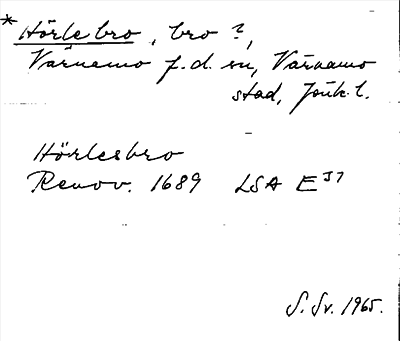 * Hörlebro, bro ?,
Värnamo f.d. sn, Värnamo
stad, Jönk. l.
Hörlesbro
Renov. 1689 LSA E 37
S. Sv. 1965.